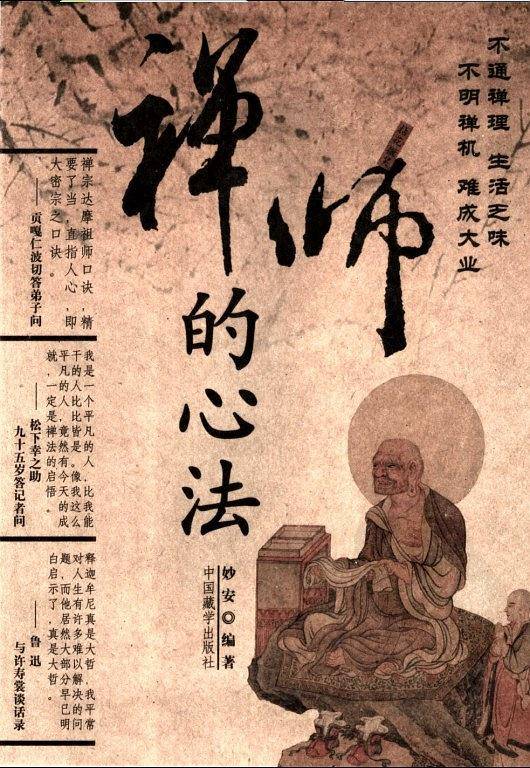 不通禅理 生活乏味
不明禅机 难成大业
禅师
的心法
禅宗达摩祖师口诀，精
要了当，直指人心，即
大密宗之口诀。
——贡嘎仁波切答弟子问
我是一个平凡的人，比我能
干的人比比皆是。像我这么
平凡的人，竟然有今天的成
就，一定是禅法的启悟。
——松下幸之助
九十五岁答记者问
释迦牟尼真是大哲，我平常
对人生有许多难以解决的问
题，而他居然大部分早已明
白启示了，真是大哲。
——鲁迅
与许寿裳谈话录
妙安◎编著
中国藏学出版社